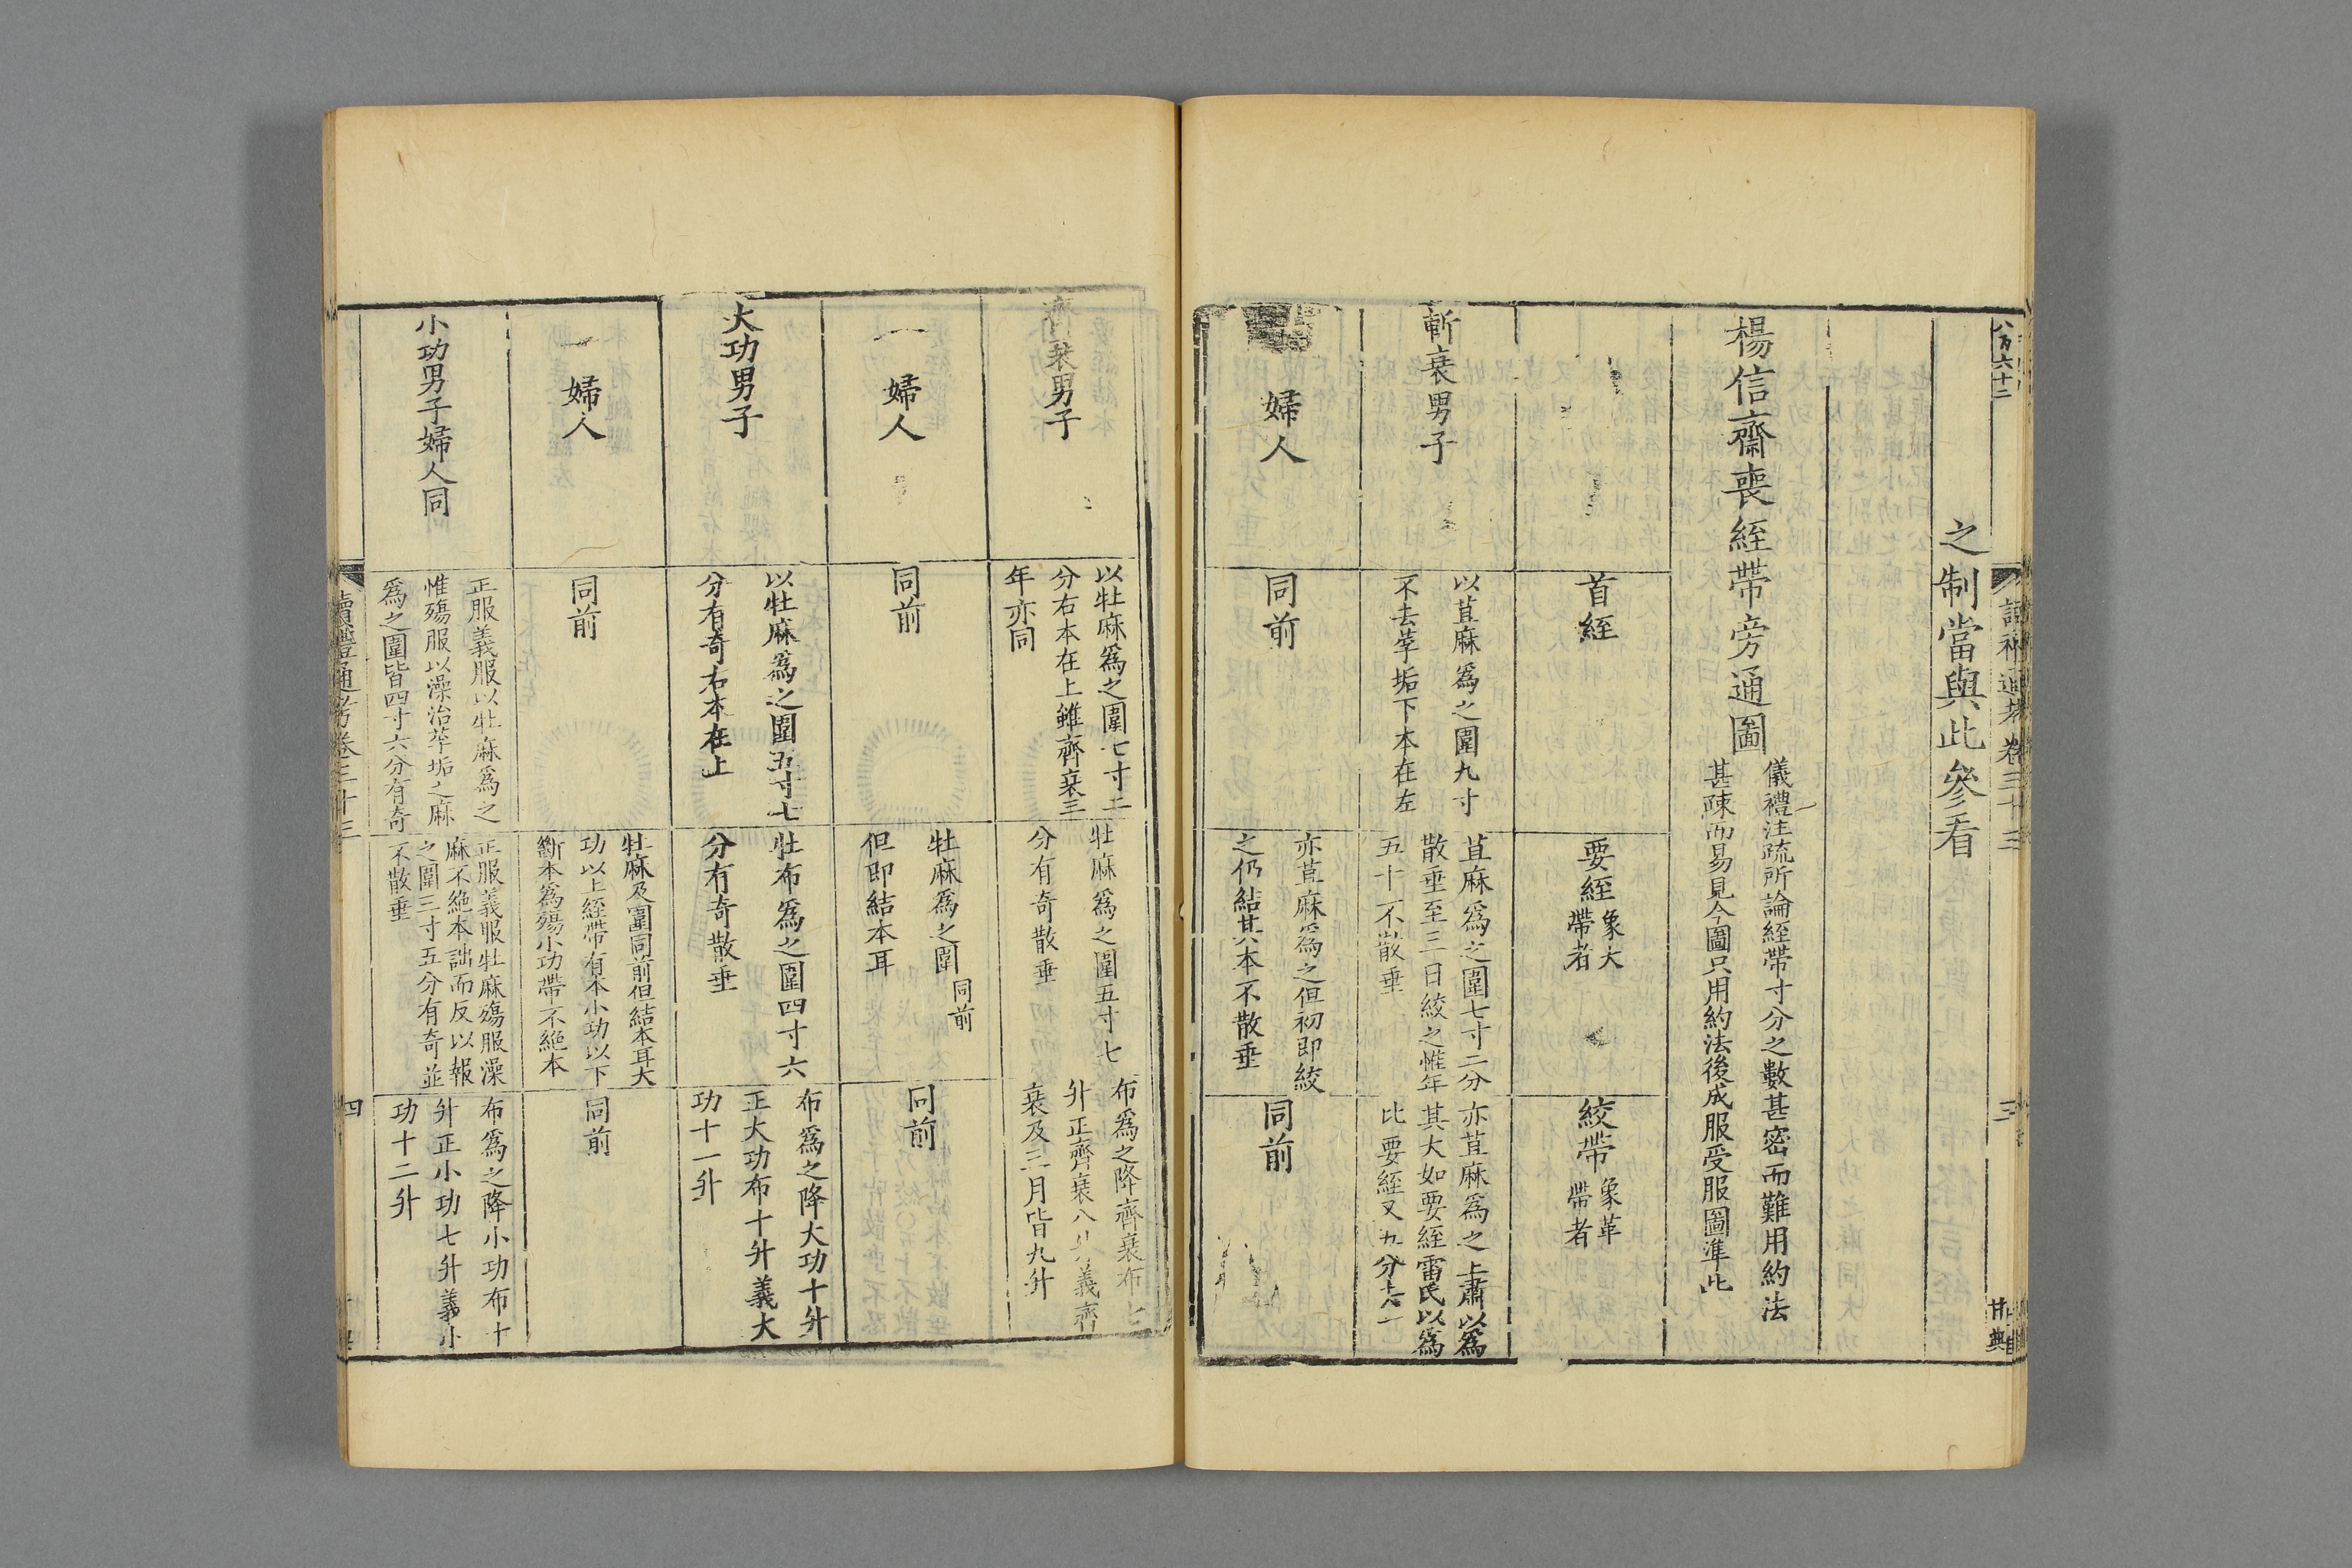 之制當與此參看
楊信齋喪絰帶旁通圖
儀禮注疏所論絰帶寸分之數甚密而難用約法
甚疎而易見今圖只用約法後成服受服圖準此
首絰
要絰
象大
帶者
絞帶
象革
帶者
斬衰男子
以苴麻爲之圍九寸
不去莩垢下本在左
苴麻爲之圍七寸二分
散垂至三日絞之惟年
五十不散垂
亦苴麻爲之上肅以爲
其大如要絰雷氏以爲
比要絰又五分去一
婦人
同前
亦苴麻爲之但初即絞
之仍結其本不散垂
同前
齊衰男子
以牡麻爲之圍七寸二
分右本在上雖齊衰三
年亦同
牡麻爲之圍五寸七
分有奇散垂
布爲之降齊衰布七
升正齊衰八升義齊
衰及三月皆九升
婦人
同前
牡麻爲之圍同前
但即結本耳
同前
大功男子
以牡麻爲之圍五寸七
分有奇右本在上
牡布爲之圍四寸六
分有奇散垂
布爲之降大功十升
正大功布十升義大
功十一升
婦人
同前
牡麻及圍同前但結本耳大
功以上絰帶有本小功以下
斷本爲殤小功帶不絕本
同前
小功男子婦人同
正服義服以牡麻爲之
惟殤服以澡治莩垢之麻
爲之圍皆四寸六分有奇
正服義服牡麻殤服澡
麻不絕本詘而反以報
之圍三寸五分有奇並
不散垂
布爲之降小功布十
升正小功七升義小
功十二升
讀禮通考卷三十三
四